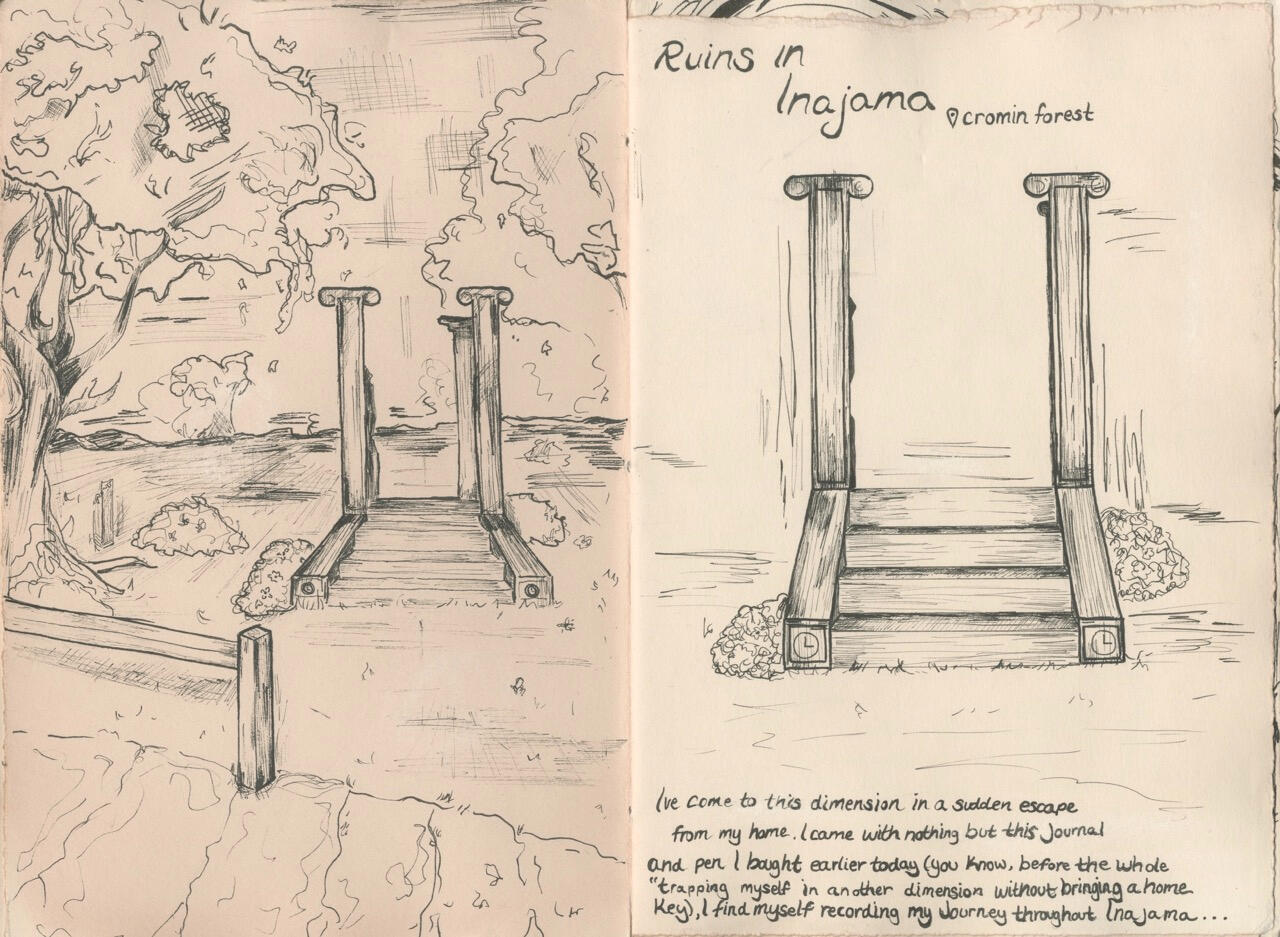 Ruins in
Inajama
cromin forest
Ive come to this dimension in a sudden escape
from my home. I came with nothing but this journal
and pen I bought earlier today (you know, before the whole
"trapping myself in another dimension without bringing a home
key), I find myself recording my journey throughout Inajama...